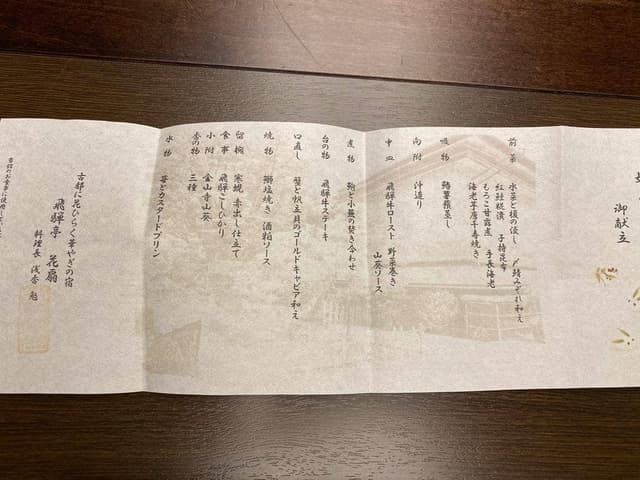 御献立
前菜 水菜と榎の浸し 〆鯖みぞれ和え
紅鮭糀漬 子持昆布
もろこ甘露煮 手長海老
海老芋唐千寿焼き
吸物 鶉薯蕷蒸し
向附 沖造り
中皿 飛騨牛ロースト 野菜巻き
山葵ソース
煮物 鮑と小蕪の焚き合わせ
台の物 飛騨牛ステーキ
口直し 蟹と帆立貝のゴールドキャビア和え
焼物 鰤塩焼き 酒粕ソース
留椀 寒蜆 赤出し仕立て
食事 飛騨こしひかり
小附 金山寺山葵
香の物 三種
水物 苺とカスタードプリン
古都に花ひらく華やぎの宿
飛騨亭 花扇
料理長 浅香 勉